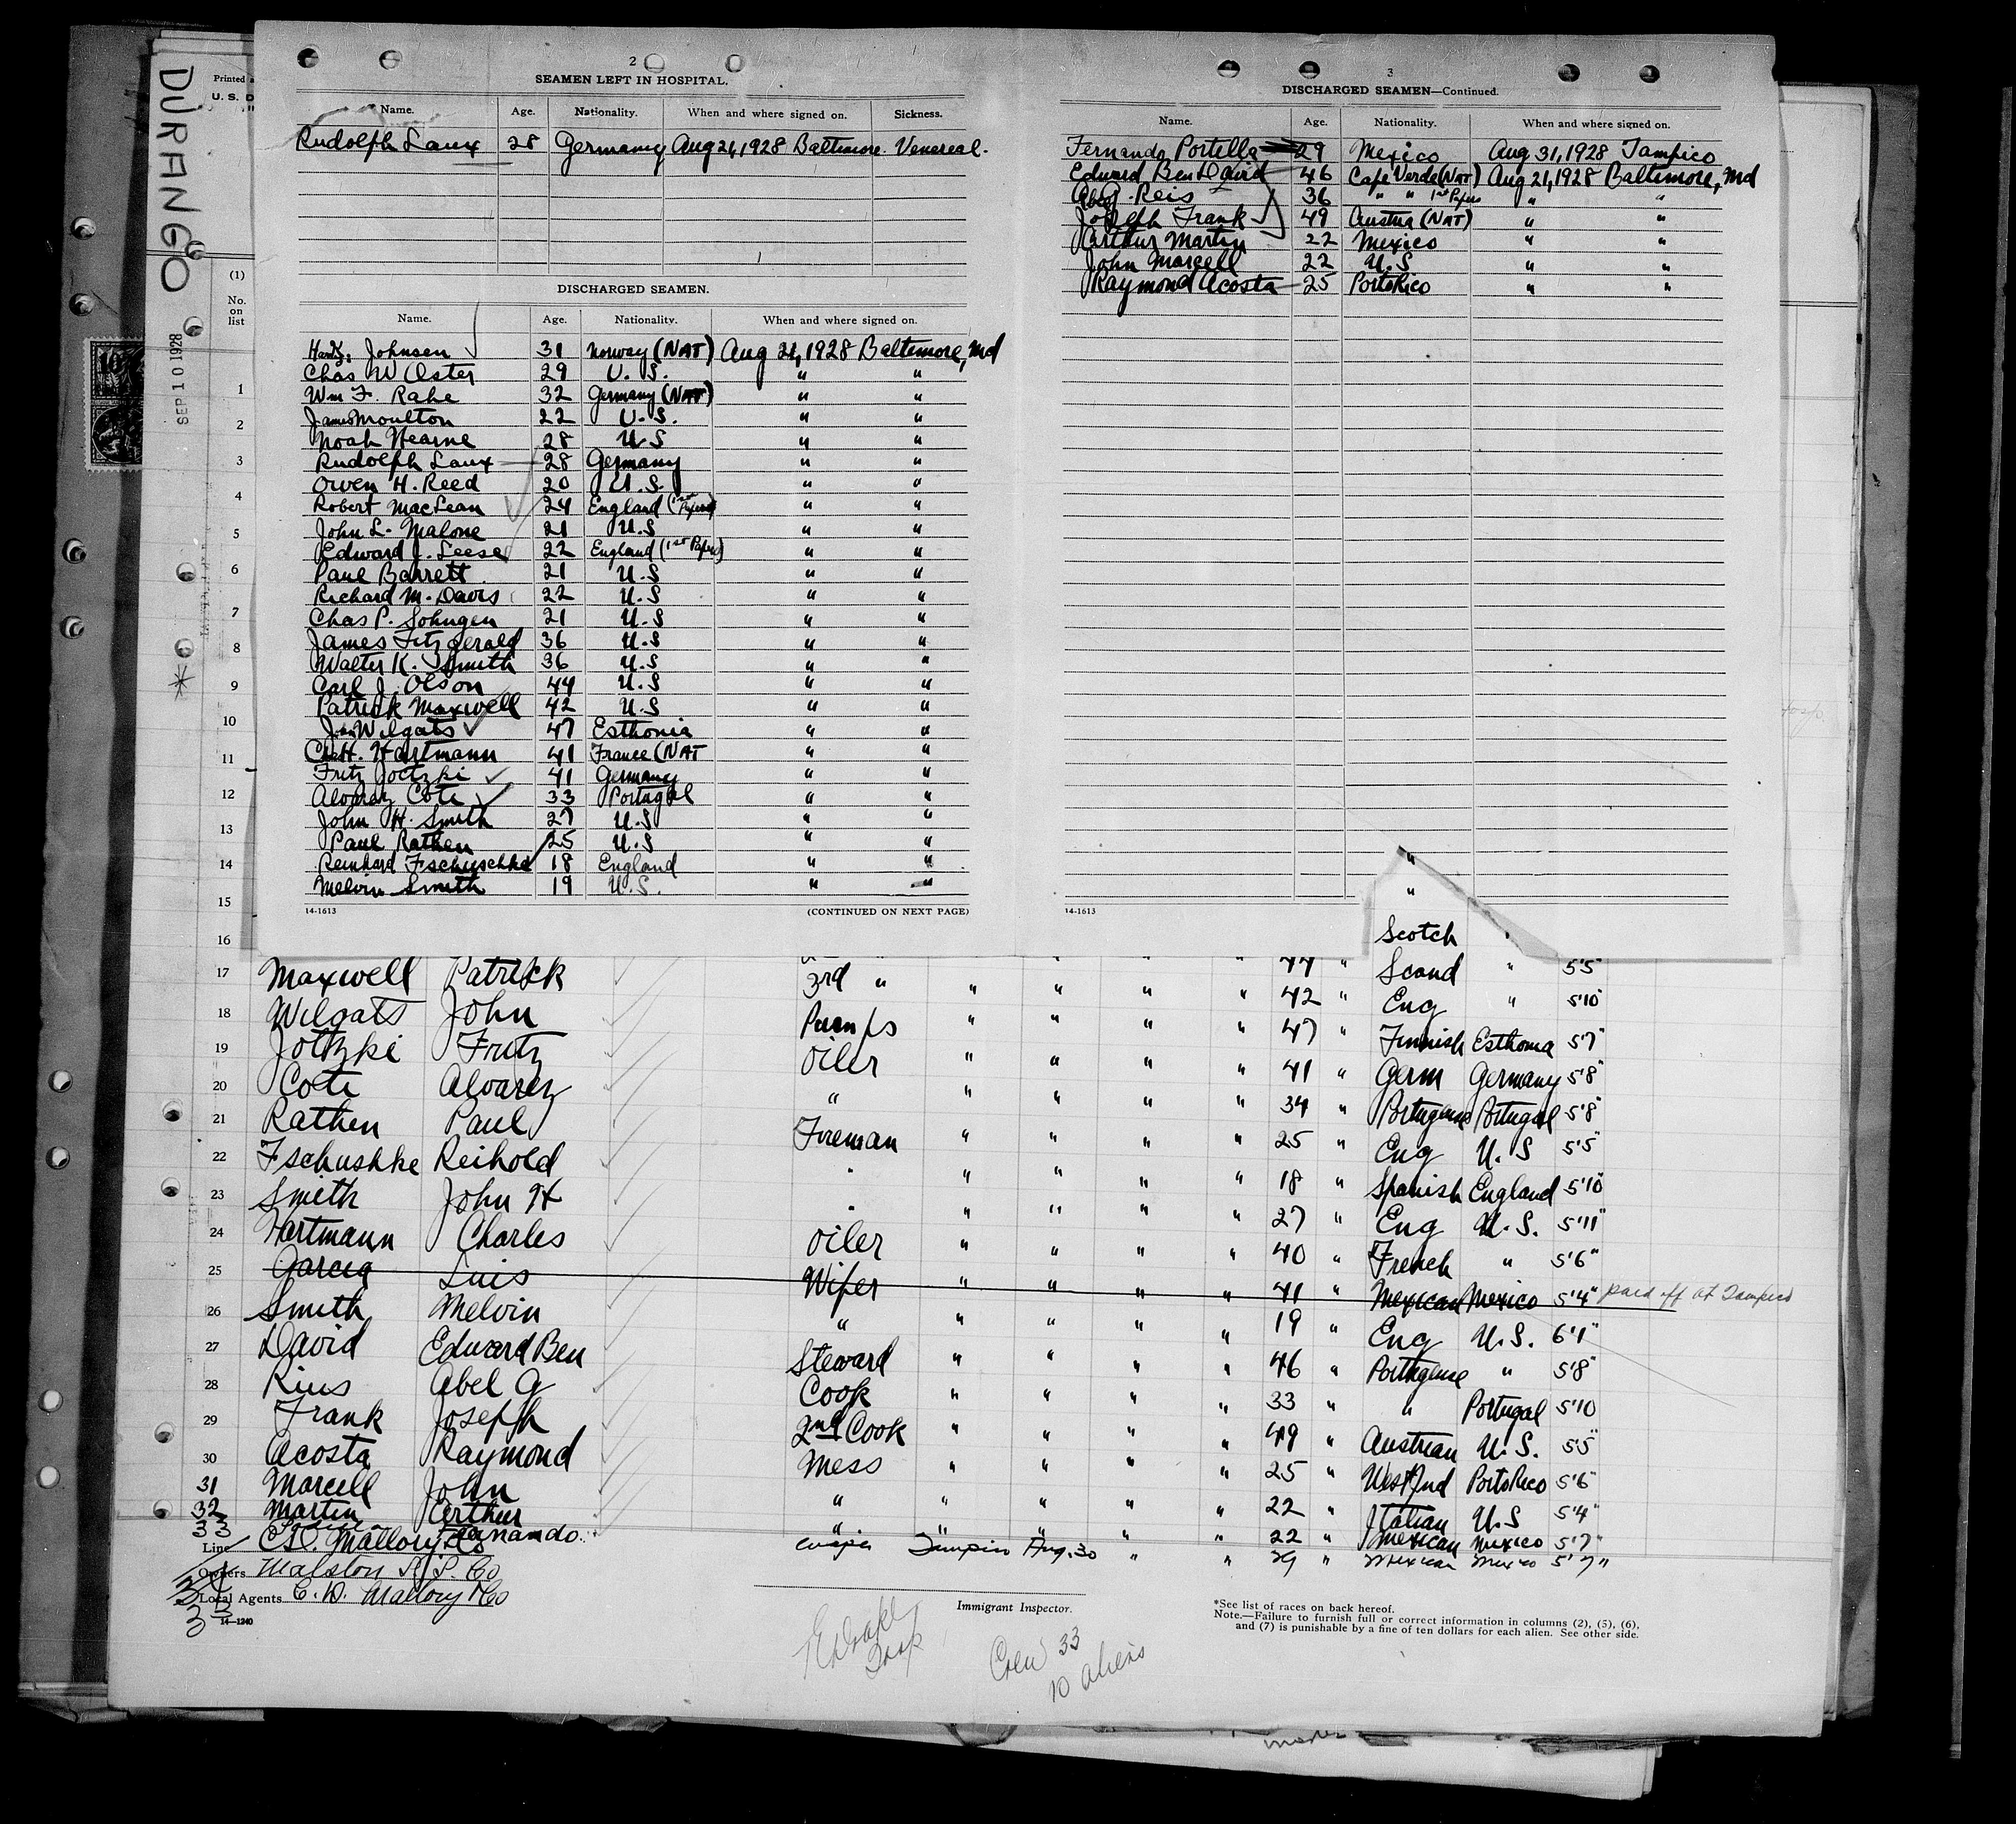 DURANGO
SEP 10 1928
Printed
U. S. D
(1)
No.
on
list
2
SEAMEN LEFT IN HOSPITAL.
Name. Age. Nationality. When and where signed on. Sickness.
Rudolph Laux 28 Germany Aug 21, 1928 Baltimore. Venereal.
DISCHARGED SEAMEN.
Name. Age. Nationality. When and where signed on.
Johnsen 31 Norway (NAT) Aug 21, 1928 Baltimore, Md
Chas W Oster 29 U. S. " "
Wm F. Rahe 32 Germany (NAT) " "
James Moulton 22 U. S. " "
Noah Hearne 28 U S " "
Rudolph Laux 28 Germany " "
Owen H. Reed 20 U. S " "
Robert MacLean 24 England (1st Papers) " "
John L. Malone 21 U.S " "
Edward J. Leese 22 England (1st Papers) " "
Paul Barrett 21 U.S " "
Richard M. Davis 22 U.S " "
Chas P. Sohngen 21 U.S " "
James Fitzgerald 36 U.S " "
Walter K. Smith 36 U.S " "
Carl J. Olson 44 U.S " "
Patrick Maxwell 42 U.S " "
John Wilgats 47 Esthonia " "
Chas H. Hartmann 41 France (NAT " "
Fritz Joetzki 41 Germany " "
Alvarez Cote 33 Portugal " "
John H. Smith 27 U.S " "
Paul Rathen 25 U.S " "
Reinhard Fschuschke 18 England " "
Melvin Smith 19 U.S. " "
14-1613 (CONTINUED ON NEXT PAGE)
3
DISCHARGED SEAMEN—Continued.
Name. Age. Nationality. When and where signed on.
Fernando Portella 29 Mexico Aug 31, 1928 Tampico
Edward Ben David 46 Cape Verde (NAT) Aug 21, 1928 Baltimore, Md
Abel G. Reis 36 " " 1st Papers " "
Joseph Frank 49 Austria (NAT) " "
Arthur Martin 22 Mexico " "
John Marcell 22 U.S " "
Raymond Acosta 25 Porto Rico " "
14-1613
1
2
3
4
5
6
7
8
9
10
11
12
13
14
15 "
16 Scotch "
44 " Scand " 5'5"
17 Maxwell Patrick 3rd " " " " " 42 " Eng " 5'10"
18 Wilgats John Pumps " " " " 47 " Finnish Esthonia 5'7"
19 Jottzki Fritz Oiler " " " " 41 " Germ Germany 5'8"
20 Cote Alvarez " " " " " 34 " Portuguese Portugal 5'8"
21 Rathen Paul Fireman " " " " 25 " Eng U. S 5'5"
22 Fschushke Reihold " " " " " 18 " Spanish England 5'10"
23 Smith John H " " " " " 27 " Eng U. S. 5'11"
24 Hartmann Charles Oiler " " " " 40 " French " 5'6"
25 Garcia Luis Wiper " " " " 41 " Mexican Mexico 5'4" paid off at Tampico
26 Smith Melvin " " " " " 19 " Eng U.S. 6'1"
27 David Edward Ben Steward " " " " 46 " Portuguese " 5'8"
28 Rius Abel G Cook " " " " 33 " " Portugal 5'10
29 Frank Joseph 2nd Cook " " " " 49 " Austrian U.S. 5'5"
30 Acosta Raymond Mess " " " " 25 " West Ind Porto Rico 5'6"
31 Marcell John " " " " " 22 " Italian U.S 5'4"
32 Martin Arthur " " " " " 22 " Mexican Mexico 5'7"
33 Fernando. Tampico Aug. 30 " " 29 " Mexican Mexico 5'7"
Line C.D. Mallory & Co
Owners Malston S.S. Co
Local Agents C. D. Mallory & Co
33
14—1240
Immigrant Inspector.
*See list of races on back hereof.
Note.—Failure to furnish full or correct information in columns (2), (5), (6),
and (7) is punishable by a fine of ten dollars for each alien. See other side.
Crew 33
10 aliens